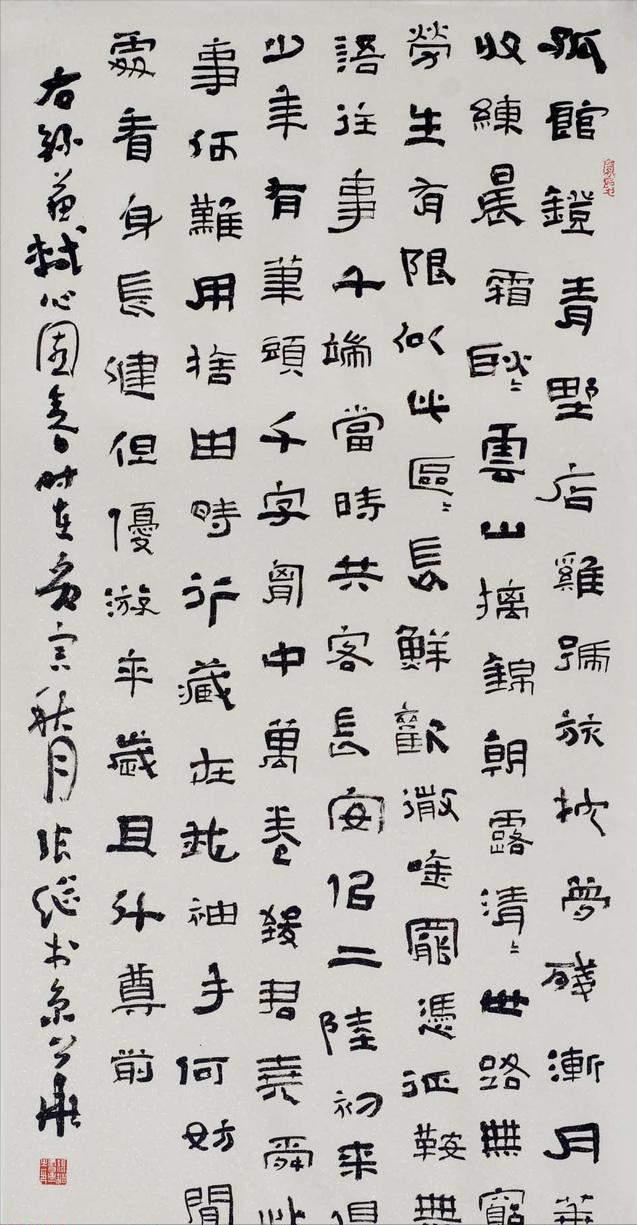 孤館鐙青野店雞號旅枕夢殘漸月華
收練晨霜耿〻雲山摛錦朝露清〻世路無窮
勞生有限似此區〻長鮮歡微唫罷憑征鞍無
語往事千端當時共客長安似二陸初來俱
少年有筆頭千字胷中萬卷致君堯舜此
事何難用捨由時行藏在我袖手何妨閒
處看身長健但優游卒歲且鬥尊前
右録蘇軾沁園春时在庚寅秋月张继书京